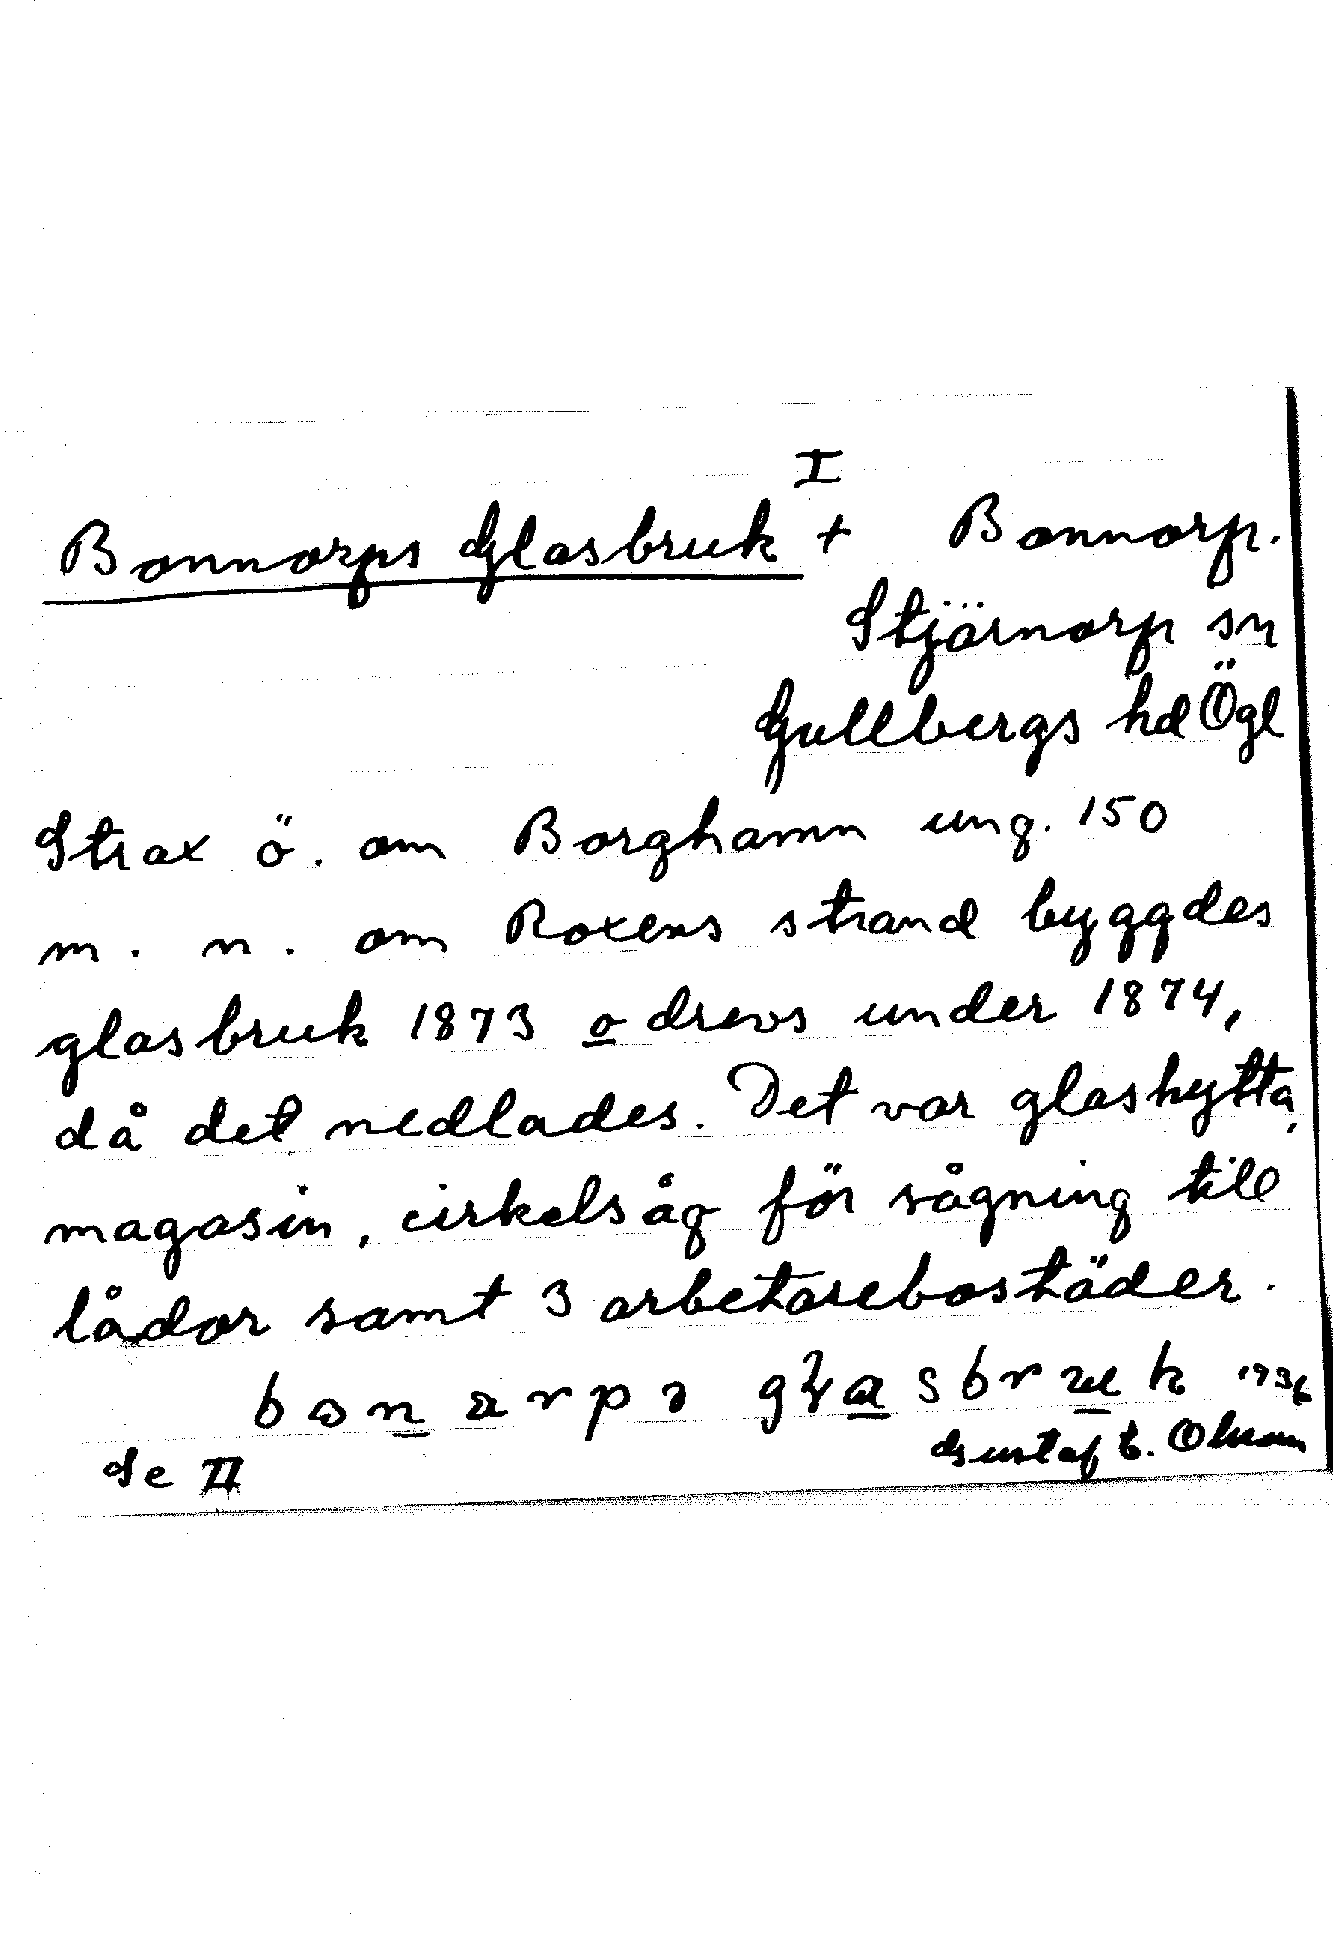 I
Bonnorps Glasbruk + Bonnorp.
Stjärnorp sn
Gullbergs hd Ögl
Strax ö. om Borghamn ung. 150
m. n. om Roxens strand byggdes
glasbruk 1873 o drevs under 1874,
då det nedlades. Det var glashytta,
magasin, cirkelsåg för sågning till
lådor samt 3 arbetarebostäder.
1936
Gustaf E. Olsson
Se II